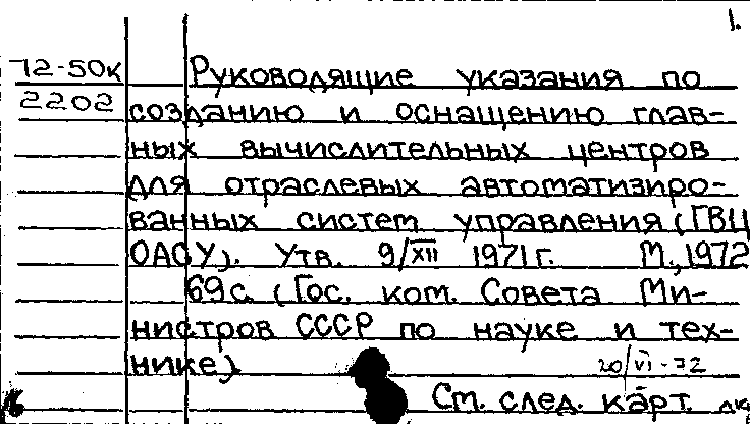 1.
72-50к Руководящие указания по
2202 созданию и оснащению глав-
ных вычислительных центров
для отраслевых автоматизиро-
ванных систем управления (ГВЦ
ОАСУ). Утв. 9/XII 1971г. М., 1972
69с. (Гос. ком. Совета Ми-
нистров СССР по науке и тех-
нике)
20/VI-72
См. след. карт.